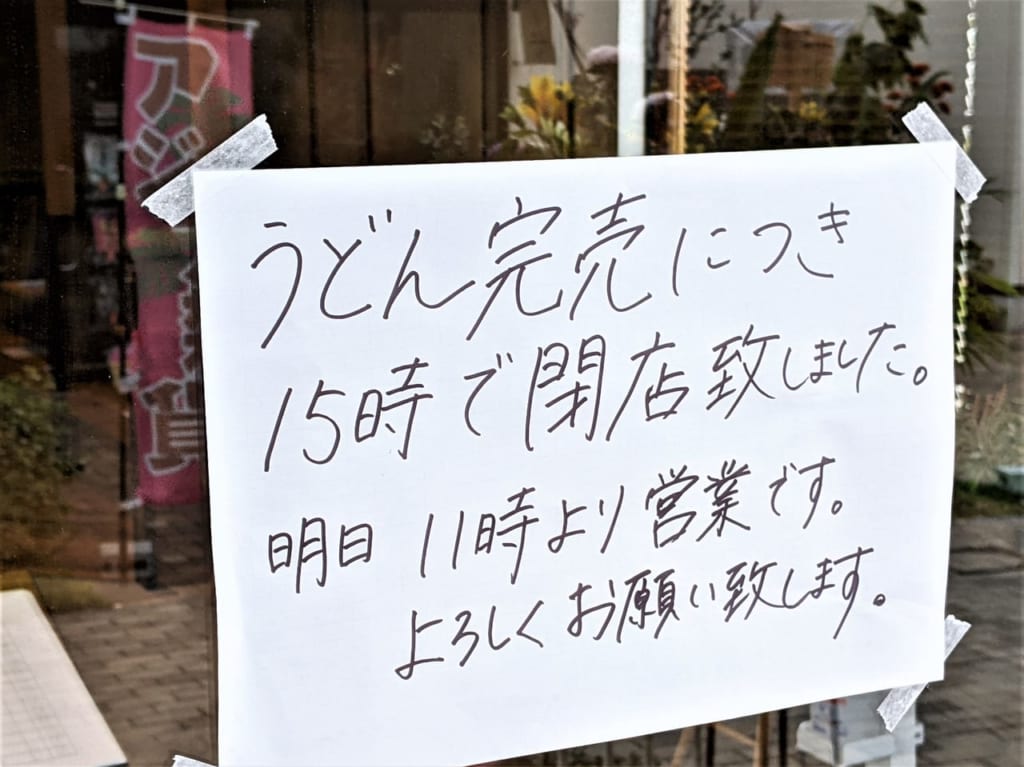 うどん完売につき
15時で閉店致しました。
明日 11時より営業です。
よろしくお願い致します。